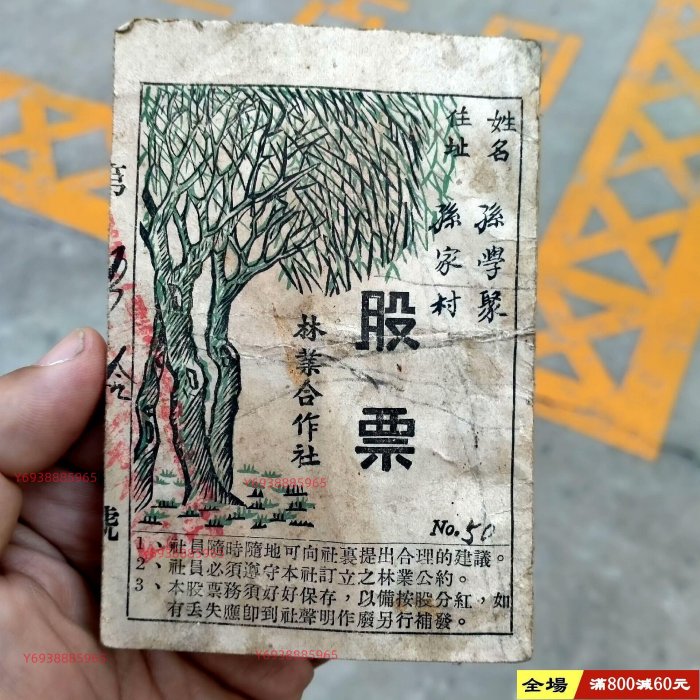 姓名 孫學聚
住址 孫家村
股票
林業合作社
第
號
No. 50
1、社員隨時隨地可向社裏提出合理的建議。
2、社員必須遵守本社訂立之林業公約。
3、本股票務須好好保存，以備按股分紅，如
有丢失應卽到社聲明作廢另行補發。
Y6938885965
Y6938885965
Y6938885965
全場
滿800減60元